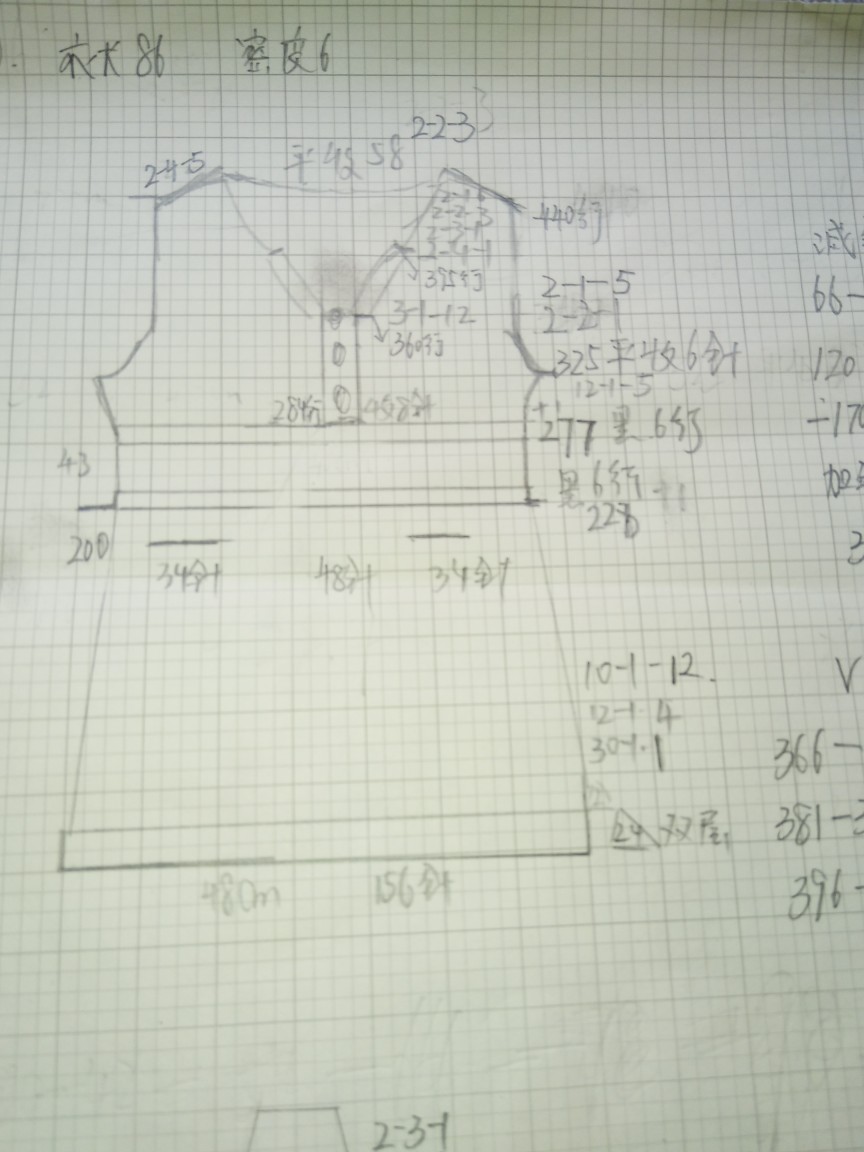 衣长86 密度6
2-2-3
2-4-5
平收58
440行
2-2-3
2-3-1
2-4-1
395行
减
3-1-12
360行
2-1-5
2-2-1
66-
325平收6针
12-1-5
120
284行
277 黑6行
-170
43
黑6行
228
200
34针
48针
34针
10-1-12.
12-1-4
30-1-1
V
366-
24
381-3
48cm
156针
396-
2-3-1